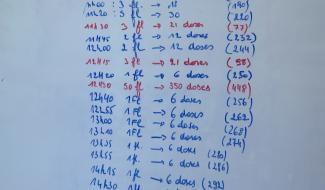 11h00 : 3 fl. → 18 (190)
11h20 : 5 fl → 30 (220)
11H30 3 fl → 21 doses (77)
11H45 2 fl → 12 doses (232)
12H00 2 fl → 12 doses (244)
12H15 3 fl → 21 doses (98)
12H20 1 fl → 6 doses (250)
12H30 50 fl → 350 doses (448)
12H40 1Fl → 6 doses (256)
12H55 1Fl → 6 doses (262)
13H00 1Fl → 6 doses (268)
13h10 1Fl → 6 doses (274)
13h35 1fl. → 6 doses (280)
13h55 1fl → 6 doses (286)
14h15 1fl
14h30 1fl → 6 doses (292)